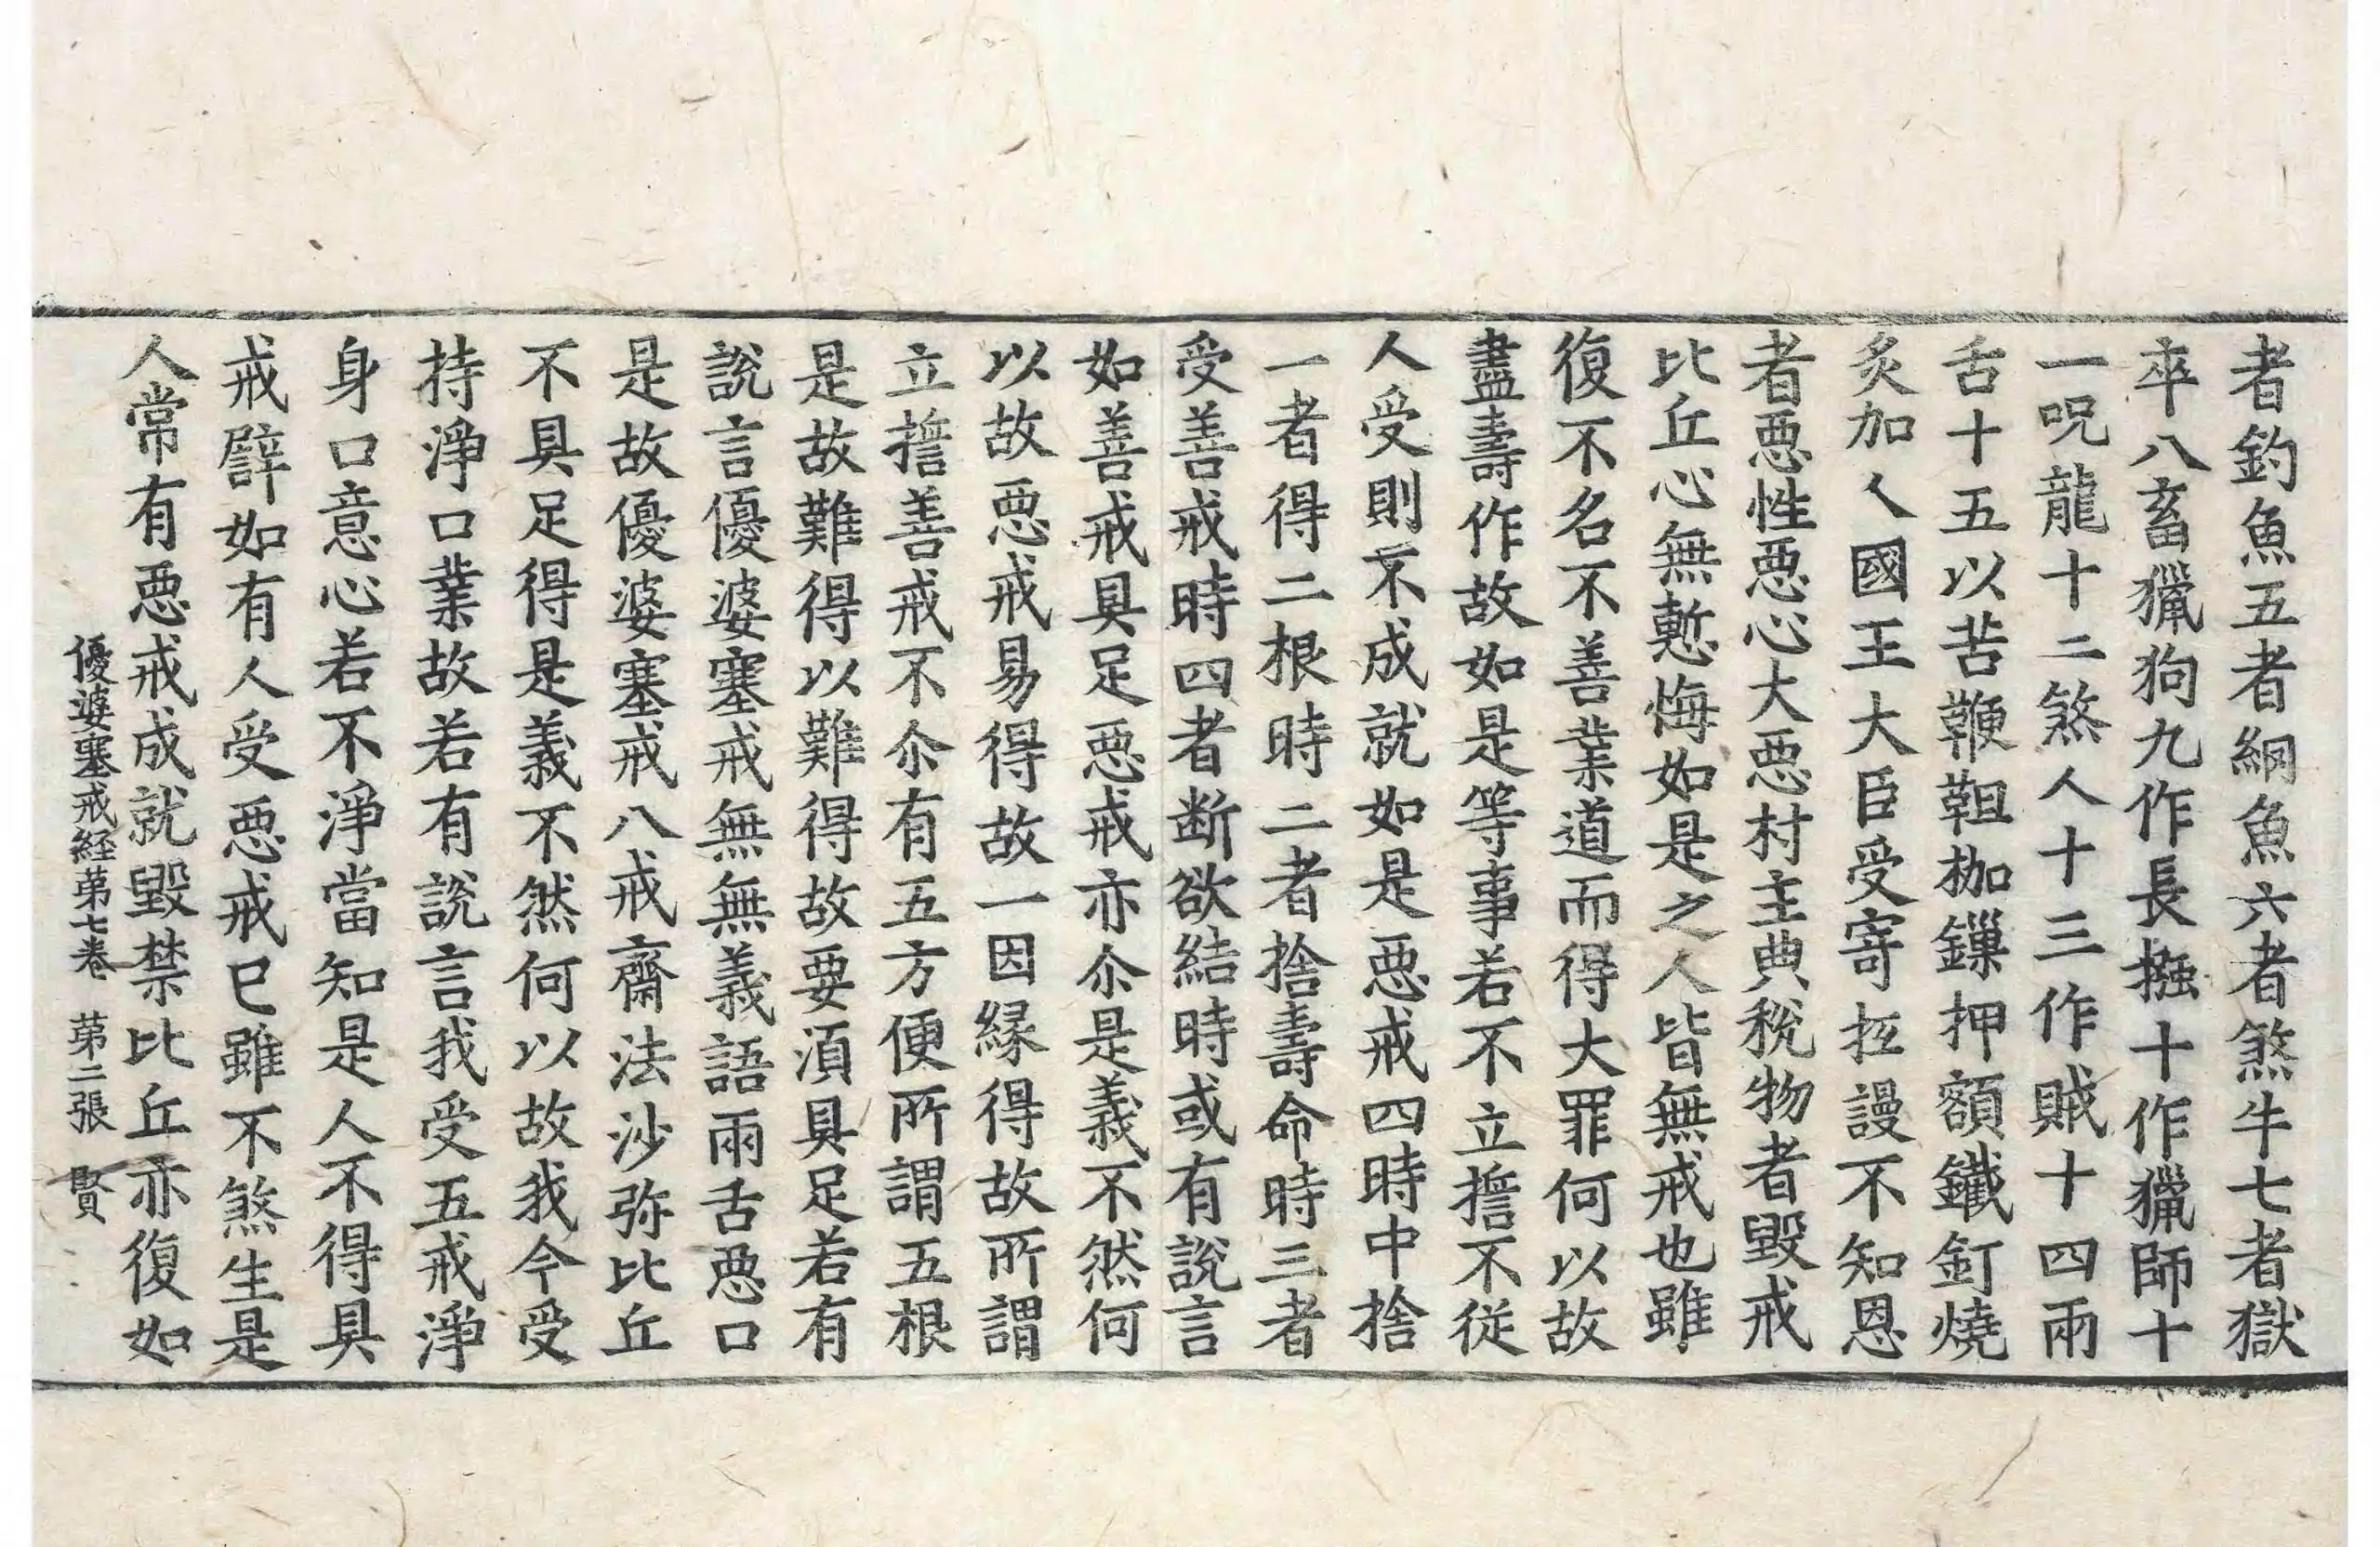 者釣魚五者網魚六者煞牛七者獄
卒八畜獵狗九作長摾十作獵師十
一呪龍十二煞人十三作賊十四兩
舌十五以苦鞭靼枷鏁押額鐵釘燒
炙加人國王大臣受寄抂謾不知恩
者惡性惡心大惡村主典稅物者毀戒
比丘心無慙悔如是之人皆無戒也雖
復不名不善業道而得大罪何以故
盡壽作故如是等事若不立擔不從
人受則不成就如是惡戒四時中捨
一者得二根時二者捨壽命時三者
受善戒時四者断欲結時或有說言
如善戒具足惡戒亦尒是義不然何
以故惡戒易得故一因緣得故所謂
立擔善戒不尒有五方便所謂五根
是故難得以難得故要湏具足若有
說言優婆塞戒無無義語兩舌惡口
是故優婆塞戒八戒齋法沙弥比丘
不具足得是義不然何以故我今受
持淨口業故若有說言我受五戒淨
身口意心若不淨當知是人不得具
戒譬如有人受惡戒已雖不煞生是
人常有惡戒成就毀禁比丘亦復如
優婆塞戒経苐七卷 苐二張 賢